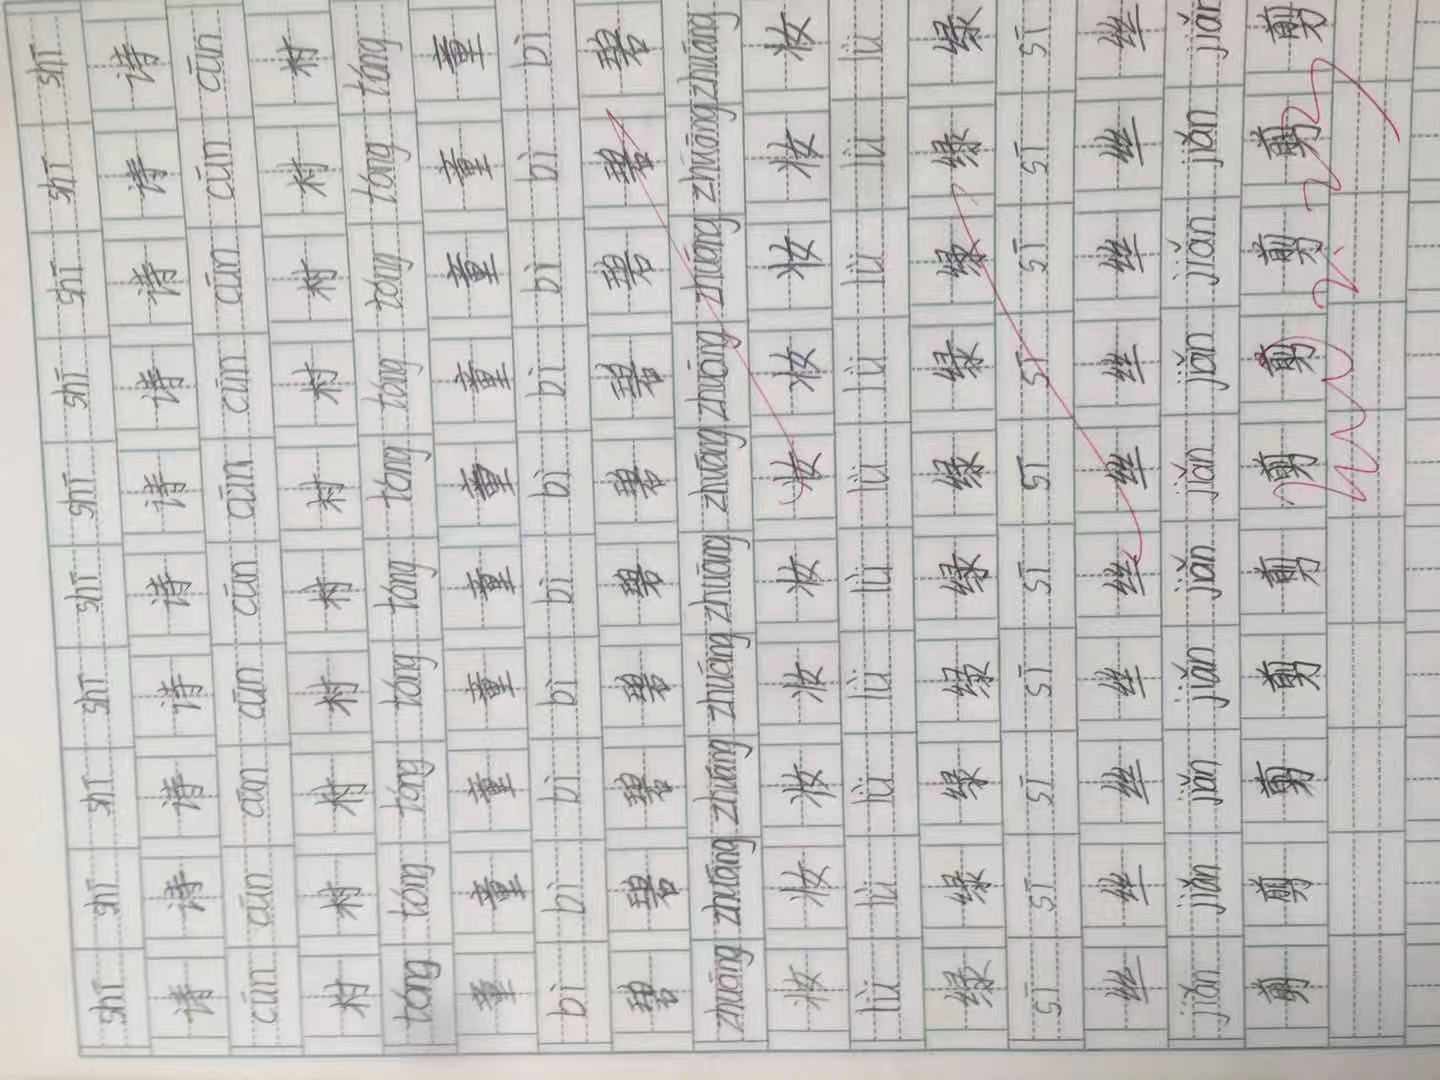 shī shī shī shī shī shī shī shī shī shī
诗 诗 诗 诗 诗 诗 诗 诗 诗 诗
cūn cūn cūn cūn cūn cūn cūn cūn cūn cūn
村 村 村 村 村 村 村 村 村 村
tóng tóng tóng tóng tóng tóng tóng tóng tóng tóng
童 童 童 童 童 童 童 童 童 童
bì bì bì bì bì bì bì bì bì bì
碧 碧 碧 碧 碧 碧 碧 碧 碧 碧
zhuāng zhuāng zhuāng zhuāng zhuāng zhuāng zhuāng zhuāng zhuāng zhuāng
妆 妆 妆 妆 妆 妆 妆 妆 妆 妆
lǜ lǜ lǜ lǜ lǜ lǜ lǜ lǜ lǜ lǜ
绿 绿 绿 绿 绿 绿 绿 绿 绿 绿
sī sī sī sī sī sī sī sī sī sī
丝 丝 丝 丝 丝 丝 丝 丝 丝 丝
jiǎn jiǎn jiǎn jiǎn jiǎn jiǎn jiǎn jiǎn jiǎn jiǎn
剪 剪 剪 剪 剪 剪 剪 剪 剪 剪